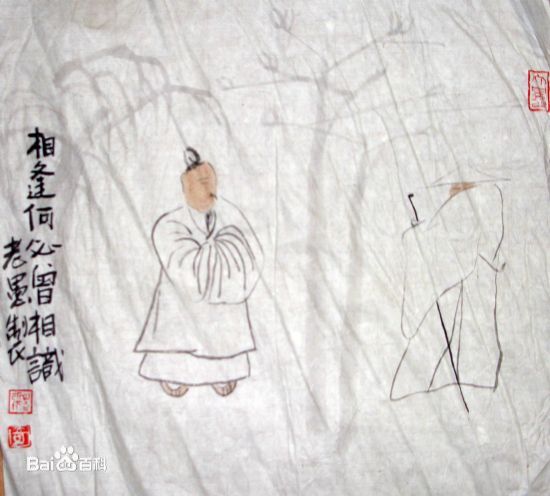 相逢何必曾相識
老墨製
Bai百科